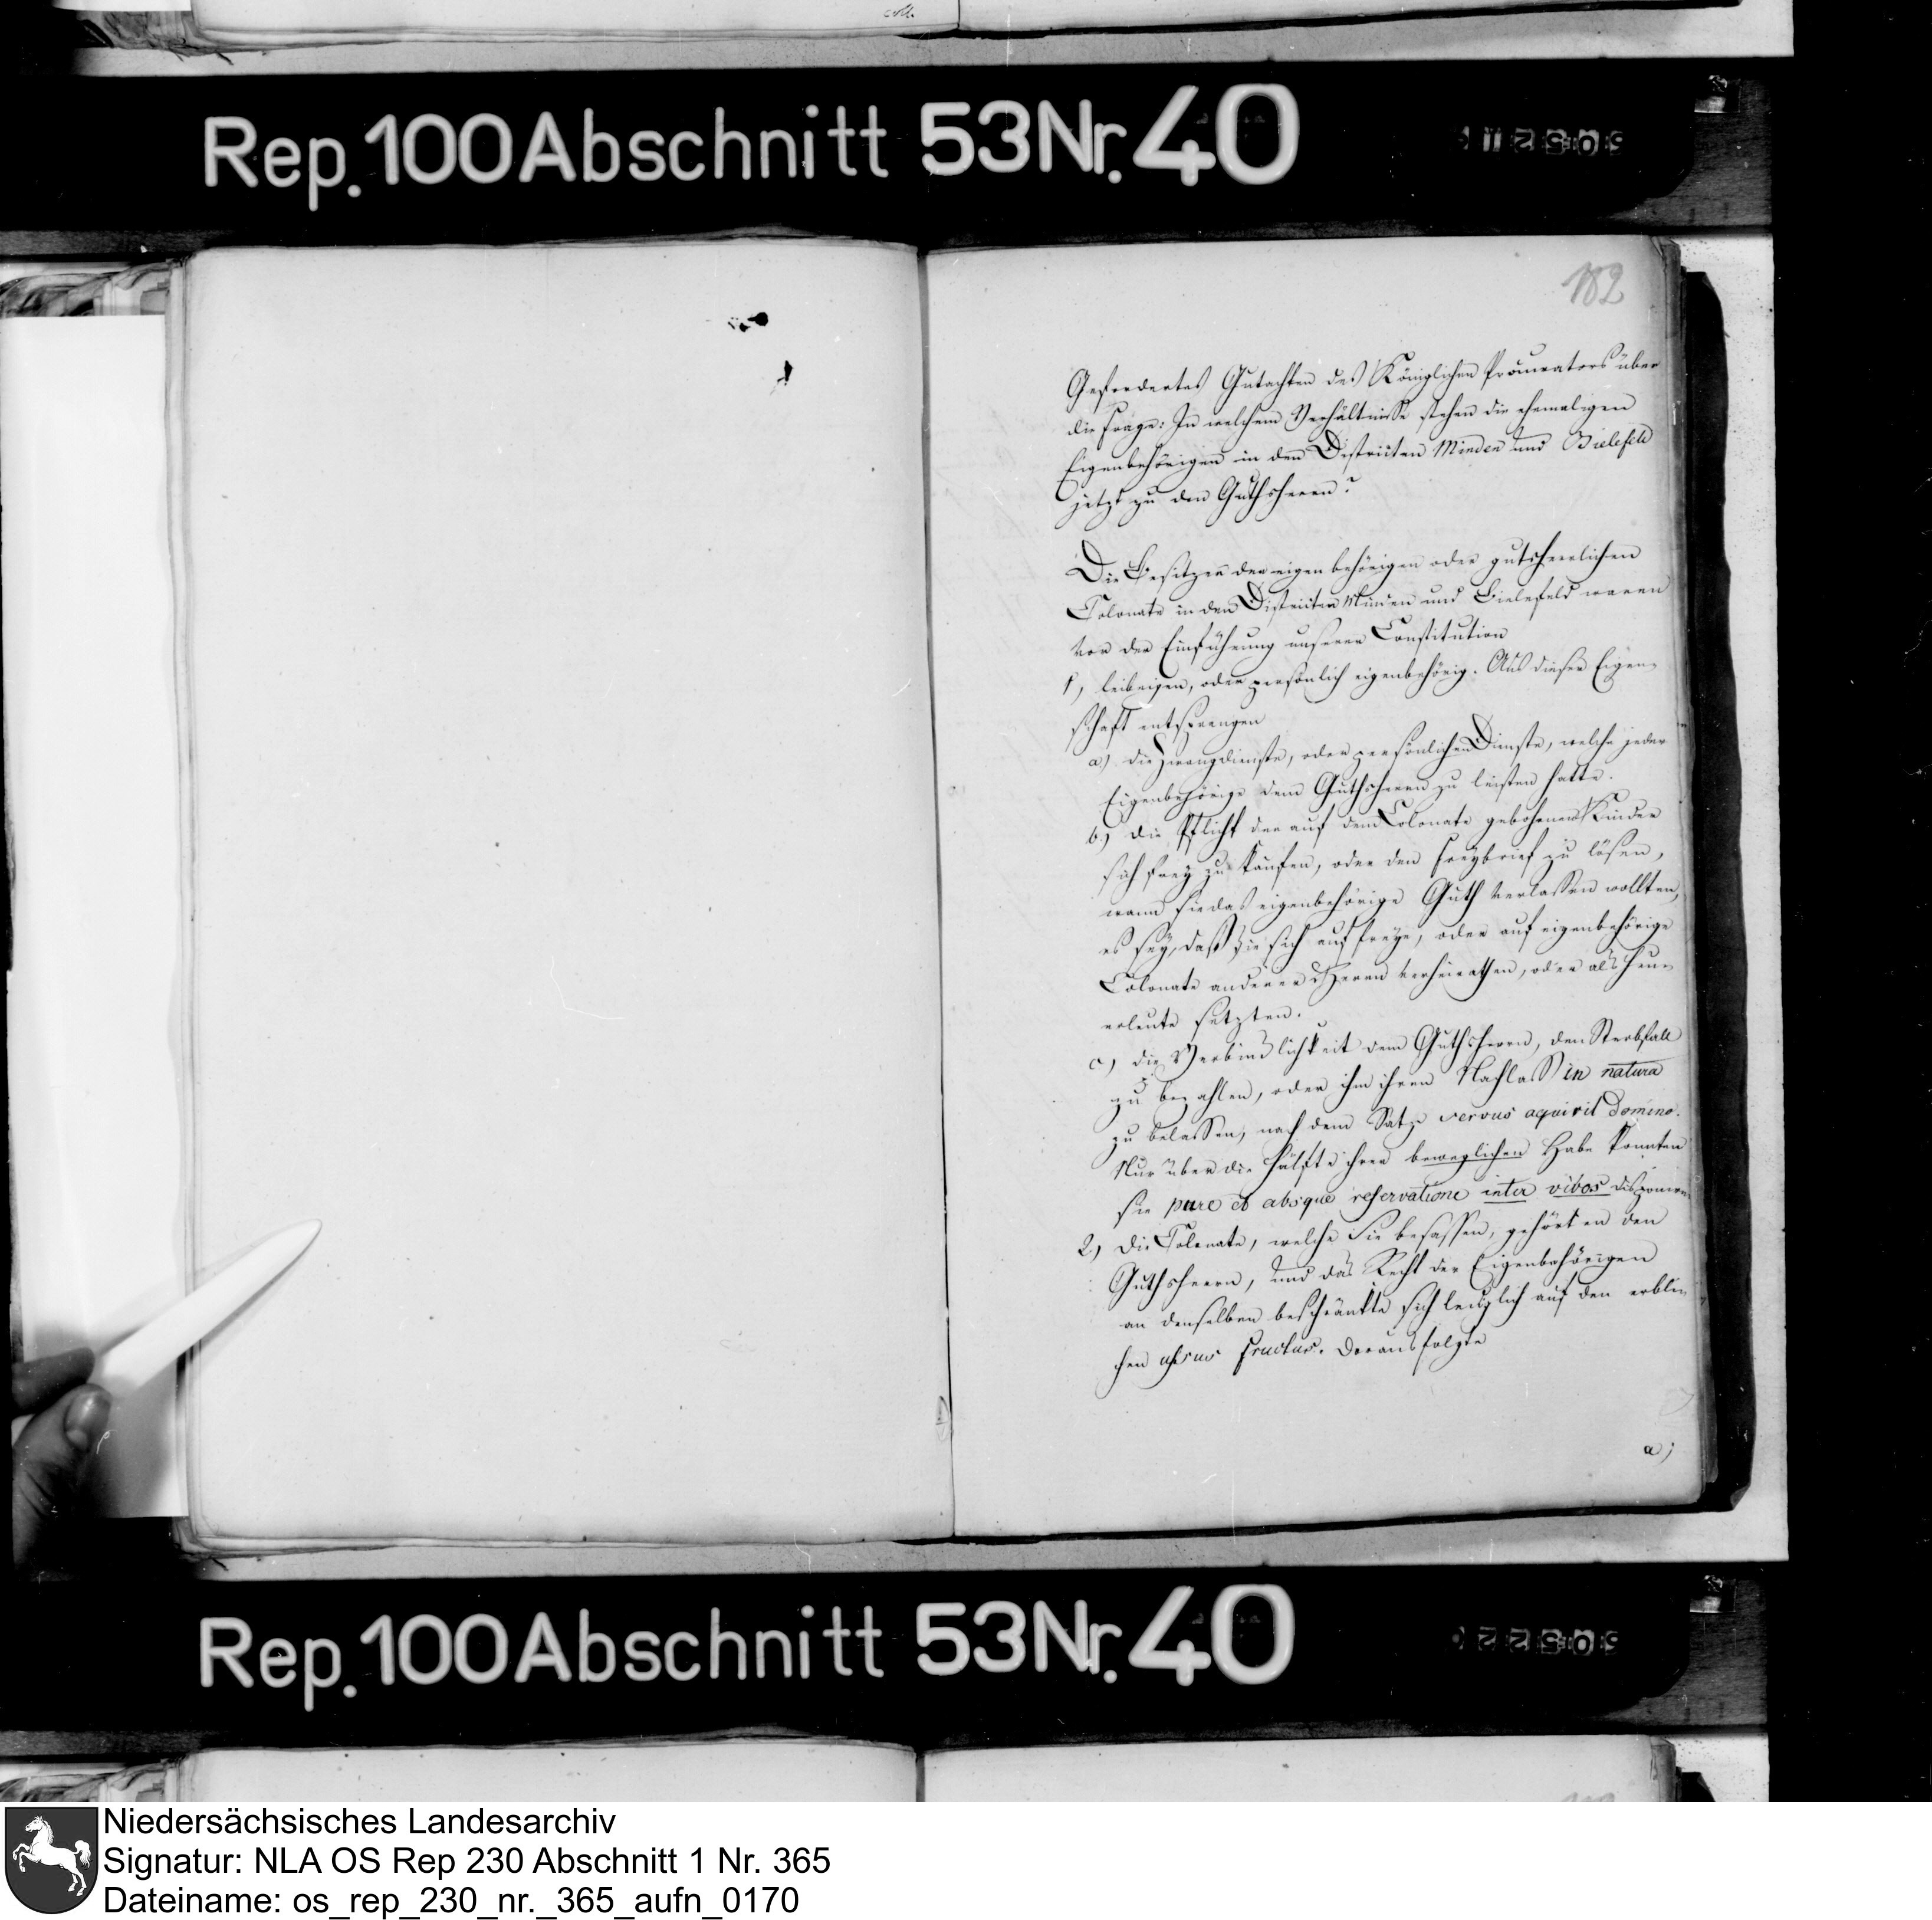 coll.
Rep. 100 Abschnitt 53 Nr. 40
182
Gefordertes Gutachten des Königlichen Procurators über
die Frage: In welchem Verhältnisse stehen die ehemaligen
Eigenbehörigen in den Districten Minden und Bielefeld
jetzt zu den Guthsherrn?
Die Besitzer der eigenbehörigen oder gutsherrlichen
Colonate in den Districten Minden und Bielefeld waren
vor der Einführung unserer Constitution
1, leibeigen, oder persönlich eigenbehörig. Aus dieser Eigen-
schaft entsprangen
a) die Zwangdienste, oder persönlichen Dienste, welche jeder
Eigenbehörige dem Guthsherrn zu leisten hatte.
b.) die Pflicht der auf dem Colonate gebohrnen Kinder
sich frey zu kaufen, oder den Freybrief zu lösen,
wann sie das eigenbehörige Guth verlassen wollten,
es sey, daß sie sich auf freye, oder auf eigenbehörige
Colonate anderer Herrn verheirathen, oder als Heu-
erleute setzten.
c) die Verbindlichkeit dem Guthsherrn, den Sterbfall
zu bezahlen, oder ihm ihren Nachlaß in natura
zu belassen, nach dem Satz servus aquirit domino.
Nur über die Hälfte ihrer beweglichen Habe konnten
sie pure et absque reservatione inter vivos disponiren
2.) die Colonate, welche Sie besassen, gehörten den
Guthsherrn, und das Recht der Eigenbehörigen
an denselben beschränkte sich lediglich auf den erbli-
chen usus fructus. Daraus folgte
a)
Rep. 100 Abschnitt 53 Nr. 40
Niedersächsisches Landesarchiv
Signatur: NLA OS Rep 230 Abschnitt 1 Nr. 365
Dateiname: os_rep_230_nr._365_aufn_0170